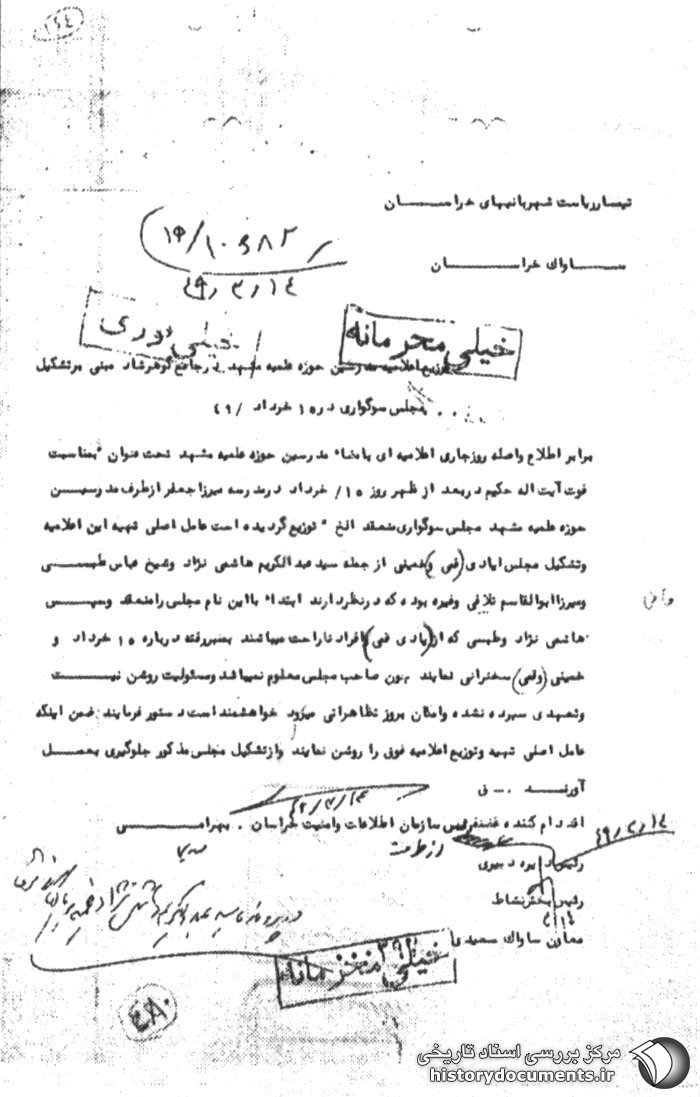 ۱۶۴
تیمسار ریاست شهربانیهای خراسان
۱۰۶۸۲/ه۱۹
ساوای خراسان
۴۹/۳/۱۴
خیلی محرمانه
خیلی فوری
توزیع اعلامیه مدرسین حوزه علمیه مشهد در جامع گوهرشاد مبنی بر تشکیل
مجلس سوگواری در ۱۵ خرداد /۴۹
برابر اطلاع واصله روز جاری اعلامیه ای بامضاء مدرسین حوزه علمیه مشهد تحت عنوان "بمناسبت
فوت آیت اله حکیم در بعد از ظهر روز ۱۵/ خرداد در مدرسه میرزا جعفر از طرف مدرسین
حوزه علمیه مشهد مجلس سوگواری منعقد الخ " توزیع گردیده است عامل اصلی تهیه این اعلامیه
وتشکیل مجلس ایادی (قمی و) خمینی از جمله سید عبدالکریم هاشمی نژاد وشیخ عباس طبسی
ومیرزا ابوالقاسم تلافی وغیره بوده که در نظر دارند ابتداء باین نام مجلس را منعقد وسپس
هاشمی نژاد وطبسی که از (ایادی قمی) وافراد ناراحت میباشند بمنبر رفته درباره ۱۵ خرداد و
خمینی (وقمی) سخنرانی نمایند چون صاحب مجلس معلوم نمیباشد ومسئولیت روشن نیست
وتعهدی سپرده نشده وامکان بروز تظاهراتی میرود خواهشمند است دستور فرمایند ضمن اینکه
عامل اصلی تهیه وتوزیع اعلامیه فوق را روشن نمایند واز تشکیل مجلس مذکور جلوگیری بعمل
آورند . ـ ق
۱۲/۳/۱۴
اقدام کننده غضنفری رئیس سازمان اطلاعات وامنیت خراسان . بهرامی
۴۹/۳/۱۴
از طرف
رئیس دایره دبیری
رئیس بخش نشاط
معاون ساواک سعیدی
خیلی محرمانه
۴۸۰
مرکز بررسی اسناد تاریخی
historydocuments.ir